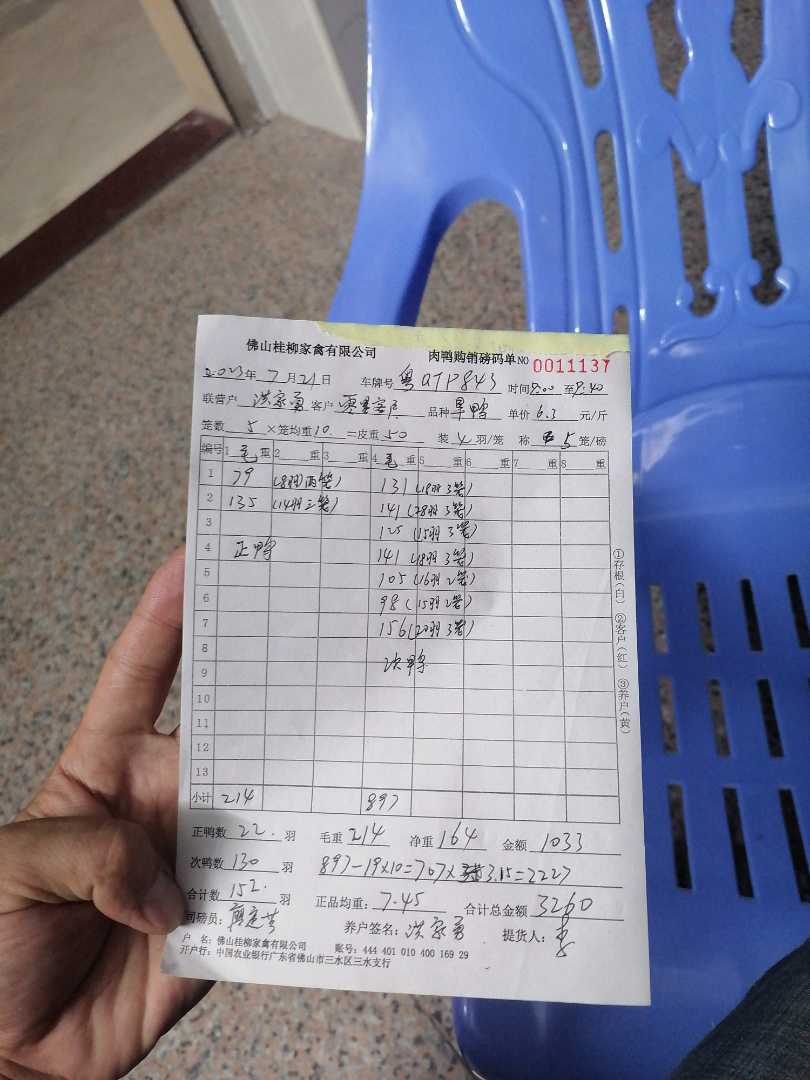 佛山桂柳家禽有限公司 肉鸭购销磅码单NO 0011137
2023年7月21日 车牌号 粤ATP843 时间8:00至9:40
联营户 洪家勇 客户 零星客户 品种 旱鸭 单价 6.3 元/斤
笼数 5 ×笼均重10 =皮重50 装 4 羽/笼 称 5 笼/磅
编号 1毛重 2 重 3 重 4毛重 5 重 6 重 7 重 8 重
1 79 (8羽两笼) 131 (19羽3笼)
2 135 (14羽三笼) 141 (28羽3笼)
3 125 (15羽3笼)
4 正鸭 141 (18羽3笼)
5 105 (16羽2笼)
6 98 (15羽2笼)
7 156 (羽3笼)
8 次鸭
9
10
11
12
13
小计 214 897
①存根(白) ②客户(红) ③养户(黄)
正鸭数 22. 羽 毛重 214 净重 164 金额 1033
次鸭数 130 羽 897-19×10=707× 3.15=2227
合计数 152. 羽 正品均重: 7.45 合计总金额 3260
司磅员: 养户签名: 洪家勇 提货人:
户 名: 佛山桂柳家禽有限公司 账号: 444 401 010 400 169 29
开户行: 中国农业银行广东省佛山市三水区三水支行